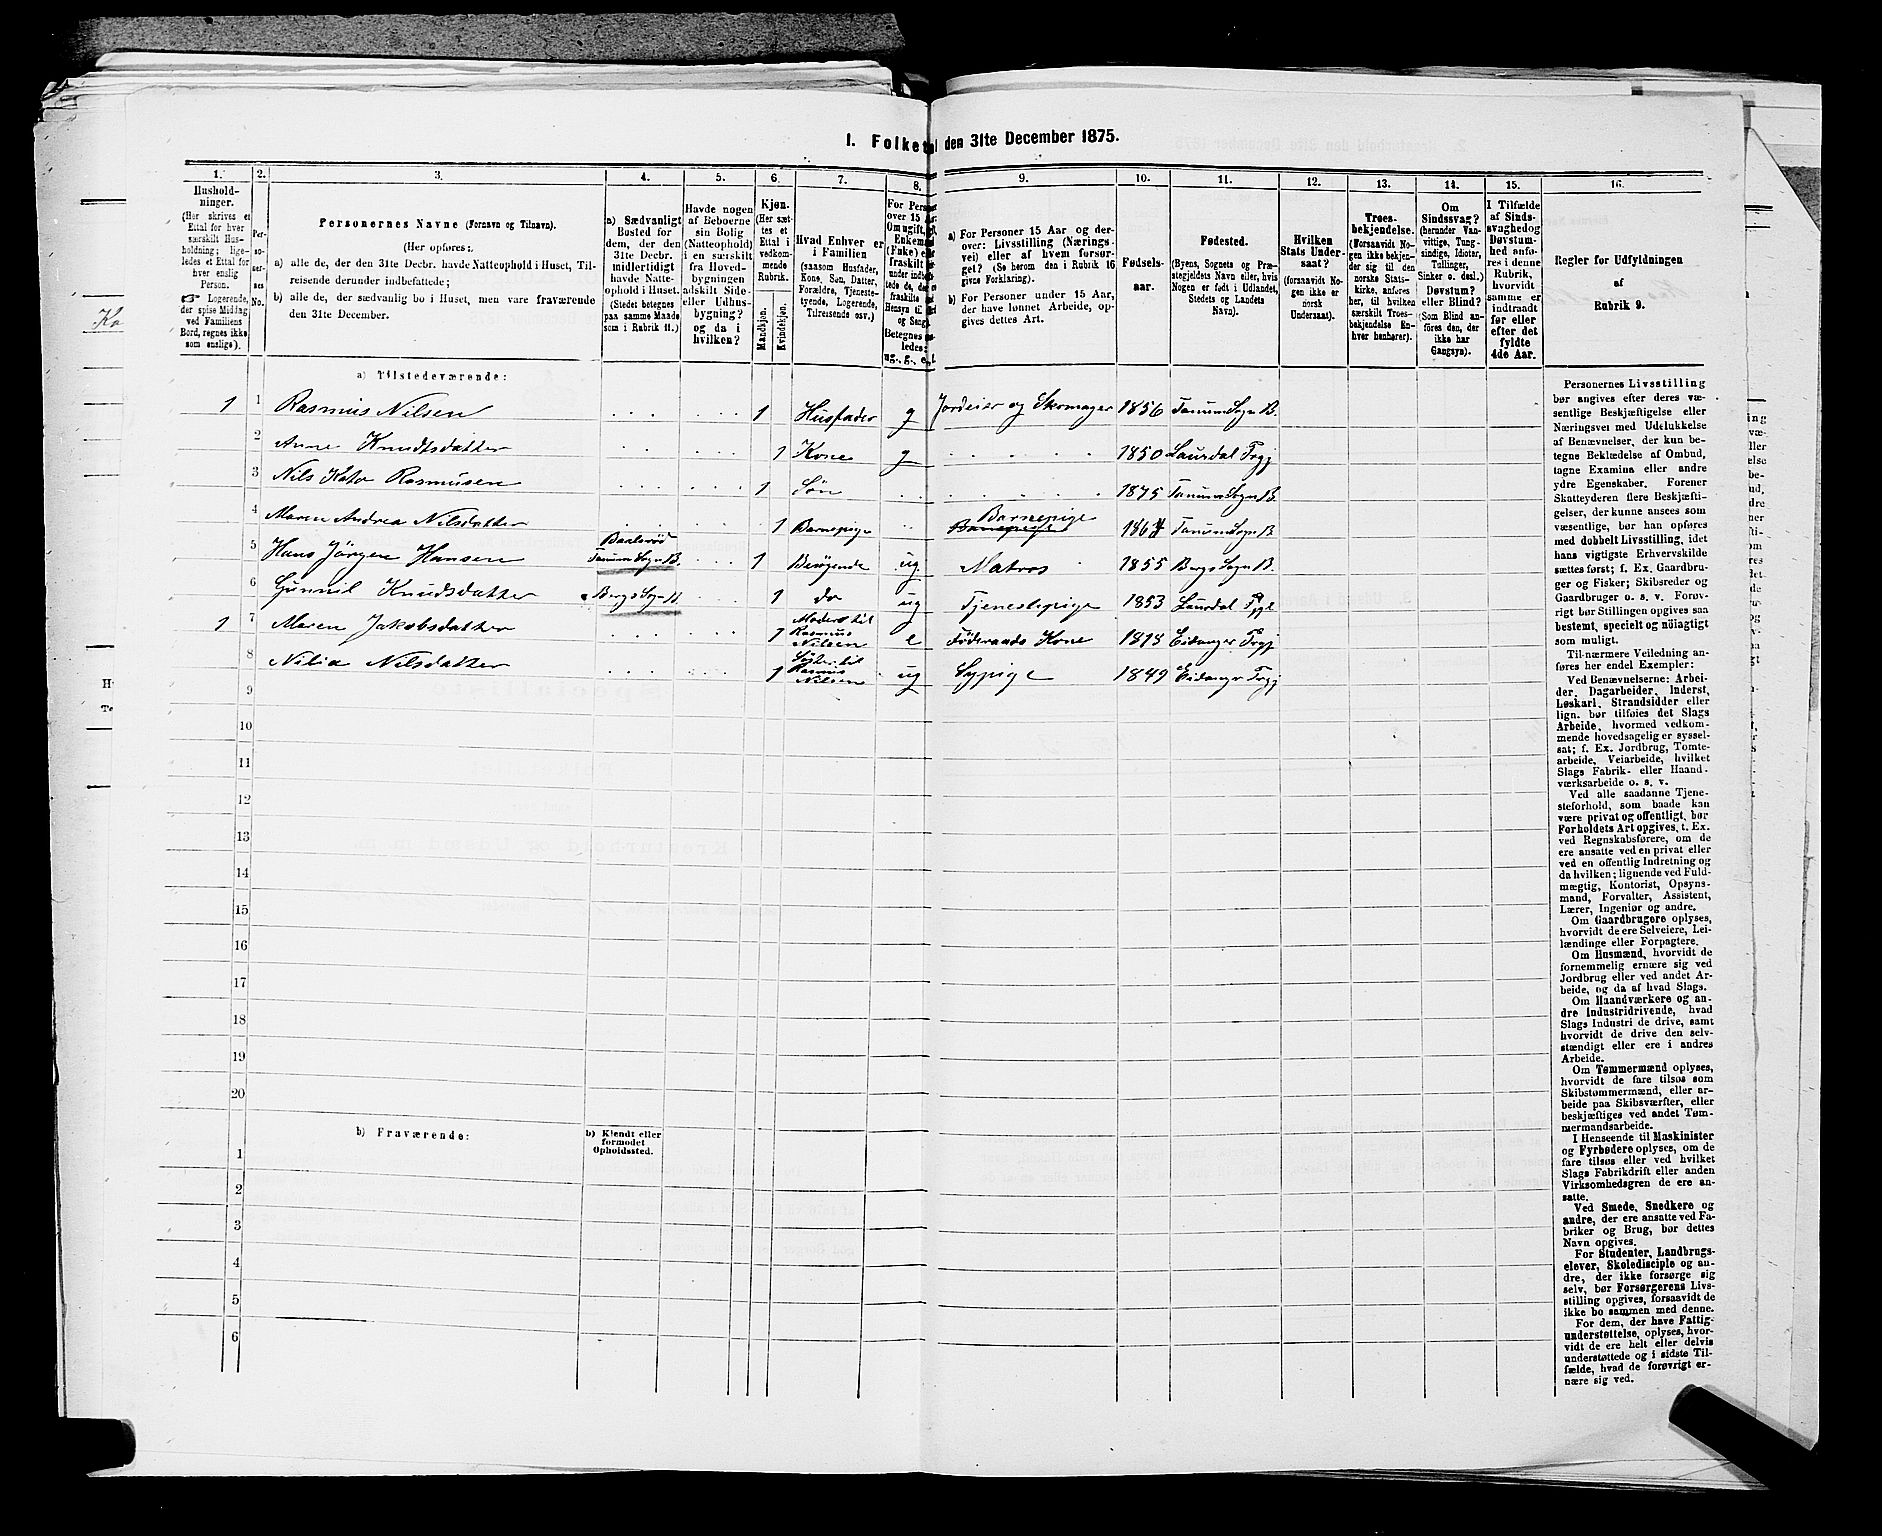 I. Folketal den 31te December 1875.
1. 2. 3. 4. 5. 6. 7. 8. 9. 10. 11. 12. 13. 14. 15. 16.
Hushold-
ninger.
(Her skrives et
Ettal for hver
særskilt Hus-
holdning; lige-
ledes et Ettal for
hver enslig
Person.
Logerende,
der spise Middag
ved Familiens
Bord, regnes ikke
som enslige).
Per-
so-
ner-
nes
No.
Personernes Navne (Fornavn og Tilnavn).
(Her opføres:
a) alle de, der den 31te Decbr. havde Natteophold i Huset, Til-
reisende derunder indbefattede;
b) alle de, der sædvanlig bo i Huset, men vare fraværende
den 31te December.
a) Sædvanligt
Bosted for
dem, der den
31te Decbr.
midlertidigt
havde Natte-
ophold i Huset.
(Stedet betegnes
paa samme Maade
som i Rubrik 11.)
Havde nogen
af Beboerne
sin Bolig
(Natteophold)
i en særskilt
fra Hoved-
bygningen
adskilt Side-
eller Udhus-
bygning?
og da i
hvilken?
Kjøn.
(Her sæt-
tes et
Ettal i
vedkom-
mende
Rubrik.
Mandkjøn.
Kvindekjøn.
Hvad Enhver er
i Familien
(saasom Husfader,
Kone, Søn, Datter,
Forældre, Tjeneste-
tyende, Logerende,
Tilreisende osv.)
For Perso
over 15 A
Om ugift,
Enkema
(Fuke) e
fraskilt
under indbe
tede de, de
fraskilte
Hensyn til
og Seng.
Betegnes s
ledes:
ug., g., e., f.
a) For Personer 15 Aar og der-
over: Livsstilling (Nærings-
vei) eller af hvem forsør-
get? (Se herom den i Rubrik 16
givne Forklaring).
b) For Personer under 15 Aar,
der have lønnet Arbeide, op-
gives dettes Art.
Fødsels-
aar.
Fødested.
(Byens, Sognets og Præ-
stegjeldets Navn eller, hvis
Nogen er født i Udlandet,
Stedets og Landets
Navn).
Hvilken
Stats Under-
saat?
(forsaavidt No-
gen ikke er
norsk
Undersaat).
Troes-
bekjendelse.
(Forsaavidt No-
gen ikke bekjen-
der sig til den
norske Stats-
kirke, anføres
her, til hvilken
særskilt Troes-
bekjendelse En-
hver henhører).
Om
Sindssvag?
(herunder Van-
vittige, Tung-
sindige, Idioter,
Tullinger,
Sinker o. desl.)
Døvstum?
eller Blind?
(Som Blind an-
føres den, der
ikke har
Gangsyn).
I Tilfælde
af Sinds-
svaghed og
Døvstum-
hed anfø-
res i denne
Rubrik,
hvorvidt
samme er
indtraadt
før eller
efter det
fyldte
4de Aar.
Regler for Udfyldningen
af
Rubrik 9.
a) Tilstedeværende:
1 1 Rasmus Nilsen 1 Husfader g Jordeier og Skomager 1856 Tanum Sogn B.
2 Anne Knudsdatter 1 Kone g 1850 Laurdal Prgj
3 Nils Kato Rasmusen 1 Søn 1875 Tanum Sogn B.
4 Maren Andrea Nilsdatter 1 Barnepige Barnepige 1864 Tanum Sogn B
5 Hans Jörgen Hansen Tanum Sogn B. 1 Besögende ug Matros 1855 Bergs Sogn B.
6 Gunnil Knudsdatter Bergs Sogn B 1 do ug Tjenestepige 1853 Laurdal Prgj
1 7 Maren Jakobsdatter 1 Moder til Rasmus Nilsen e Föderaads Kone 1818 Eidanger Prgj
8 Nilia Nilsdatter 1 Söster til Rasmus Nilsen ug Sypige 1849 Eidanger Prgj
9
10
11
12
13
14
15
16
17
18
19
20
b) Fraværende:
b) Kjendt eller
formodet
Opholdssted.
1
2
3
4
5
6
Personernes Livsstilling
bør angives efter deres væ-
sentlige Beskjæftigelse eller
Næringsvei med Udelukkelse
af Benævnelser, der kun be-
tegne Beklædelse af Ombud,
tagne Examina eller andre
ydre Egenskaber. Forener
Skatteyderen flere Beskjæfti-
gelser, der kunne ansees som
væsentlige, bør han opføres
med dobbelt Livsstilling, idet
hans vigtigste Erhvervskilde
sættes først; f. Ex. Gaardbru-
ger og Fisker; Skibsreder og
Gaardbruger o. s. v. Forøv-
rigt bør Stillingen opgives saa
bestemt, specielt og nöiagtigt
som muligt.
Til nærmere Veiledning an-
føres her endel Exempler:
Ved Benævnelserne: Arbei-
der, Dagarbeider, Inderst,
Løskarl, Strandsidder eller
lign. bør tilføies det Slags
Arbeide, hvormed vedkom-
mende hovedsagelig er syssel-
sat; f. Ex. Jordbrug, Tomte-
arbeide, Veiarbeide, hvilket
Slags Fabrik- eller Haand-
værksarbeide o. s. v.
Ved alle saadanne Tjene-
steforhold, som baade kan
være privat og offentligt, bør
Forholdets Art opgives, t. Ex.
ved Regnskabsførere, om de
ere ansatte ved en privat eller
ved en offentlig Indretning og
da hvilken; lignende ved Fuld-
mægtig, Kontorist, Opsyns-
mand, Forvalter, Assistent,
Lærer, Ingeniør og andre.
Om Gaardbrugere oplyses,
hvorvidt de ere Selveiere, Lei-
lændinge eller Forpagtere.
Om Husmænd, hvorvidt de
fornemmelig ernære sig ved
Jordbrug eller ved andet Ar-
beide, og da af hvad Slags.
Om Haandværkere og an-
dre Industridrivende, hvad
Slags Industri de drive, samt
hvorvidt de drive den selv-
stændigt eller ere i andres
Arbeide.
Om Tømmermænd oplyses,
hvorvidt de fare tilsøs som
Skibstømmermænd, eller ar-
beide paa Skibsværfter, eller
beskjæftiges ved andet Tøm-
mermandsarbeide.
I Henseende til Maskinister
og Fyrbødere oplyses, om de
fare tilsøs eller ved hvilket
Slags Fabrikdrift eller anden
Virksomhedsgren de ere an-
satte.
Ved Smede, Snedkere og
andre, der ere ansatte ved Fa-
briker og Brug, bør dettes
Navn opgives.
For Studenter, Landbrugs-
elever, Skoledisciple og an-
dre, der ikke forsørge sig
selv, bør Forsørgerens Livs-
stilling opgives, forsaavidt de
ikke bo sammen med denne.
For dem, der have Fattig-
understøttelse, oplyses, hvor-
vidt de ere helt eller delvis
understøttede og i sidste Til-
fælde, hvad de forøvrigt er-
nære sig ved.